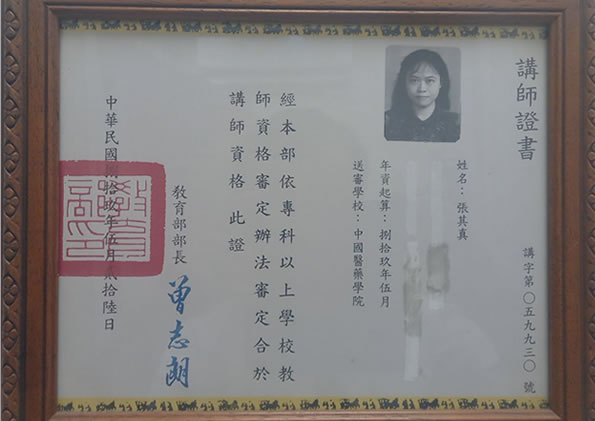 講師證書
講字第〇五九九三〇號
姓名：張其真
年資起算：捌拾玖年伍月
送審學校：中國醫藥學院
經本部依專科以上學校教
師資格審定辦法審定合於
講師資格此證
教育部部長
曾志朗
中華民國捌拾玖年伍月貳拾陸日
教育部印